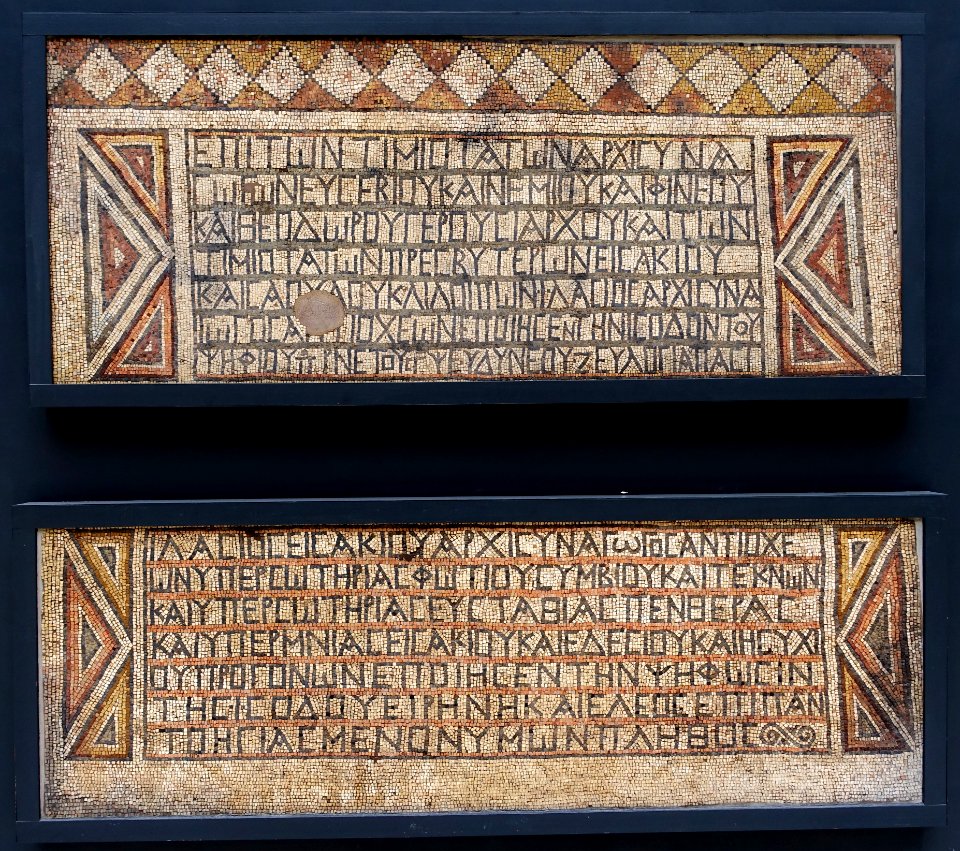 ΕΠΙ ΤΩΝ ΤΙΜΙΟΤΑΤΩΝ ΑΡΧΙCΥΝΑ
ΓΩΓΩΝ ΕΥCΕΒΙΟΥ ΚΑΙ ΝΕΜΙΟΥ ΚΑΙ ΦΙΝΕΟΥ
ΚΑΙ ΘΕΟΔΩΡΟΥ ΓΕΡΟΥCΙΑΡΧΟΥ ΚΑΙ ΤΩΝ
ΤΙΜΙΟΤΑΤΩΝ ΠΡΕCΒΥΤΕΡΩΝ ΕΙCΑΚΙΟΥ
ΚΑΙ CΑΟΥΛΟΥ Κ ΛΙΛΟΙΠΩΝ ΙΛΑCΙΟC ΑΡΧΙCΥΝΑ
ΓΩΓΟC ΑΝΤΙΟΧΕΩΝ ΕΠΟΙΗCΕΝ ΤΗΝ ΙCΟΔΟΝ ΤΟΥ
ΨΗΦΙΟΥ Π ΡΝ ΕΤΟΥC ΓΨ ΕΥΔΥΝΕΟΥ Ζ ΕΥΛΟΓΙΑ ΠΑCΙ
ΙΛΑCΙΟC ΕΙCΑΚΙΟΥ ΑΡΧΙCΥΝΑΓΩΓΟC ΑΝΤΙΟΧΕ
ΩΝ ΥΠΕΡ CΩΤΗΡΙΑC ΦΩΤΙΟΥ CΥΜΒΙΟΥ ΚΑΙ ΤΕΚΝΩΝ
ΚΑΙ ΥΠΕΡ CΩΤΗΡΙΑC ΕΥCΤΑΘΙΑC ΠΕΝΘΕΡΑC
ΚΑΙ ΥΠΕΡ ΜΝΙΑC ΕΙCΑΚΙΟΥ ΚΑΙ ΕΔΕCΙΟΥ ΚΑΙ ΗCΥΧΙ
ΟΥ ΠΡΟΓΟΝΩΝ ΕΠΟΙΗCΕΝ ΤΗΝ ΨΗΦΩCΙΝ
ΤΗC ΙCΟΔΟΥ ΕΙΡΗΝΗ ΚΑΙ ΕΛΕΟC ΕΠΙ ΠΑΝ
ΤΟ ΗΓΙΑCΜΕΝΟΝ ΥΜΩΝ ΠΛΗΘΟC